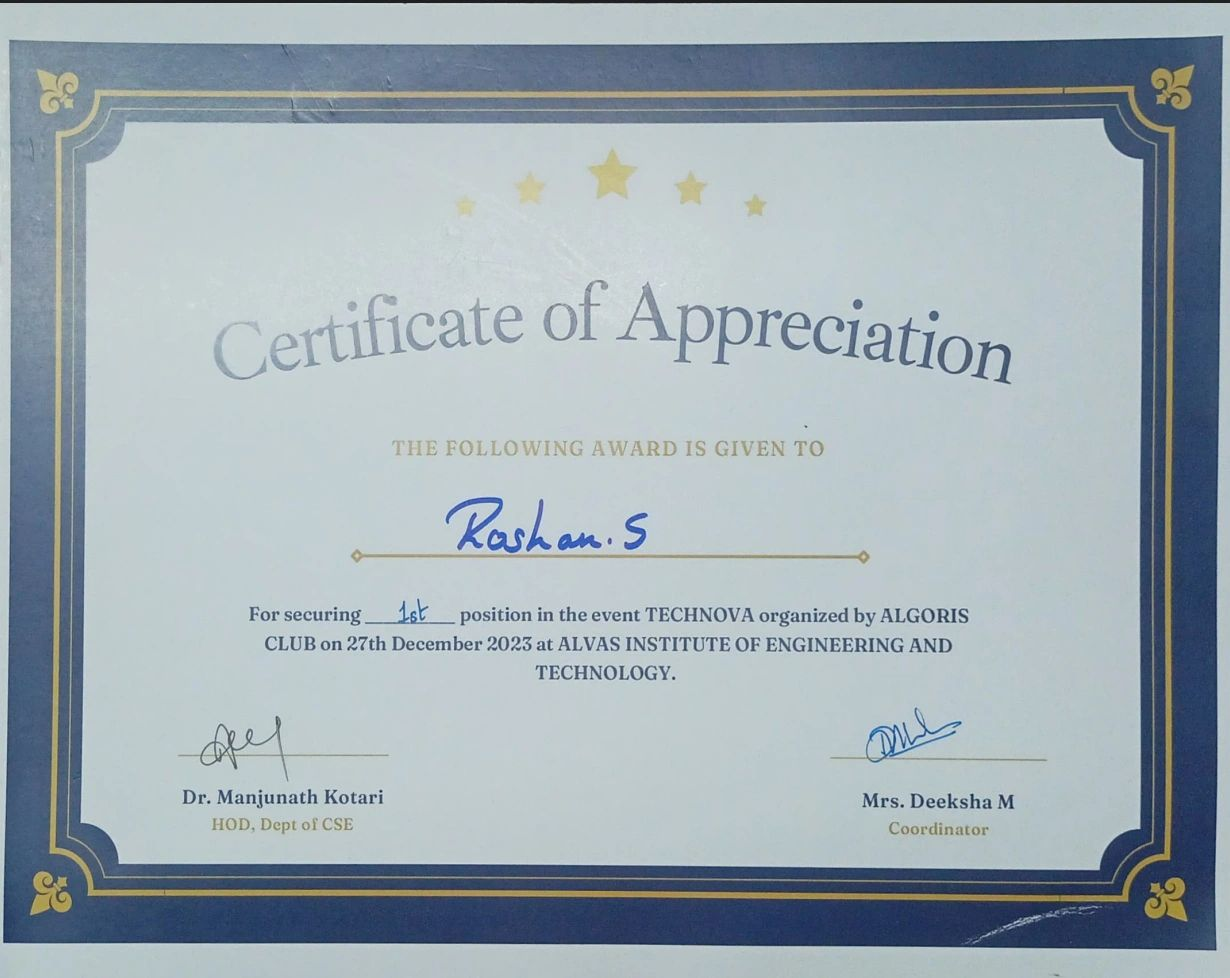 Certificate of Appreciation
THE FOLLOWING AWARD IS GIVEN TO
Roshan. S
For securing 1st position in the event TECHNOVA organized by ALGORIS
CLUB on 27th December 2023 at ALVAS INSTITUTE OF ENGINEERING AND
TECHNOLOGY.
Dr. Manjunath Kotari
HOD, Dept of CSE
Mrs. Deeksha M
Coordinator